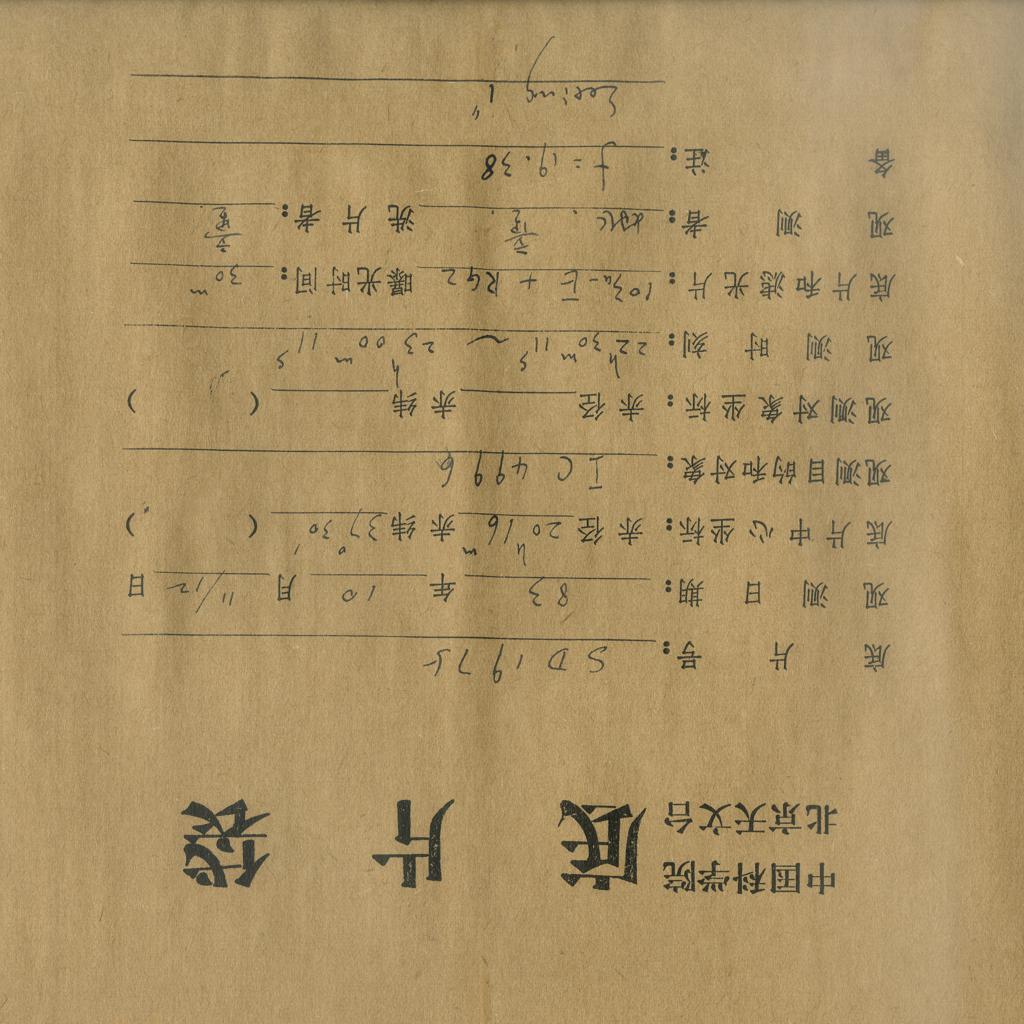 中国科学院
北京天文台
底片袋
底片号: SD1975
观测日期: 83年10月11/12日
底片中心坐标: 赤径20h16m赤纬37°30′( )
观测目的和对象: IC 4996
观测对象坐标: 赤径 赤纬 ( )
观测时刻: 22h30m11s ~ 23h00m11s
底片和滤光片: 103a-E + RG2 曝光时间: 30m
观测者: 洗片者:
备注: f=19.38
Seeing 1"